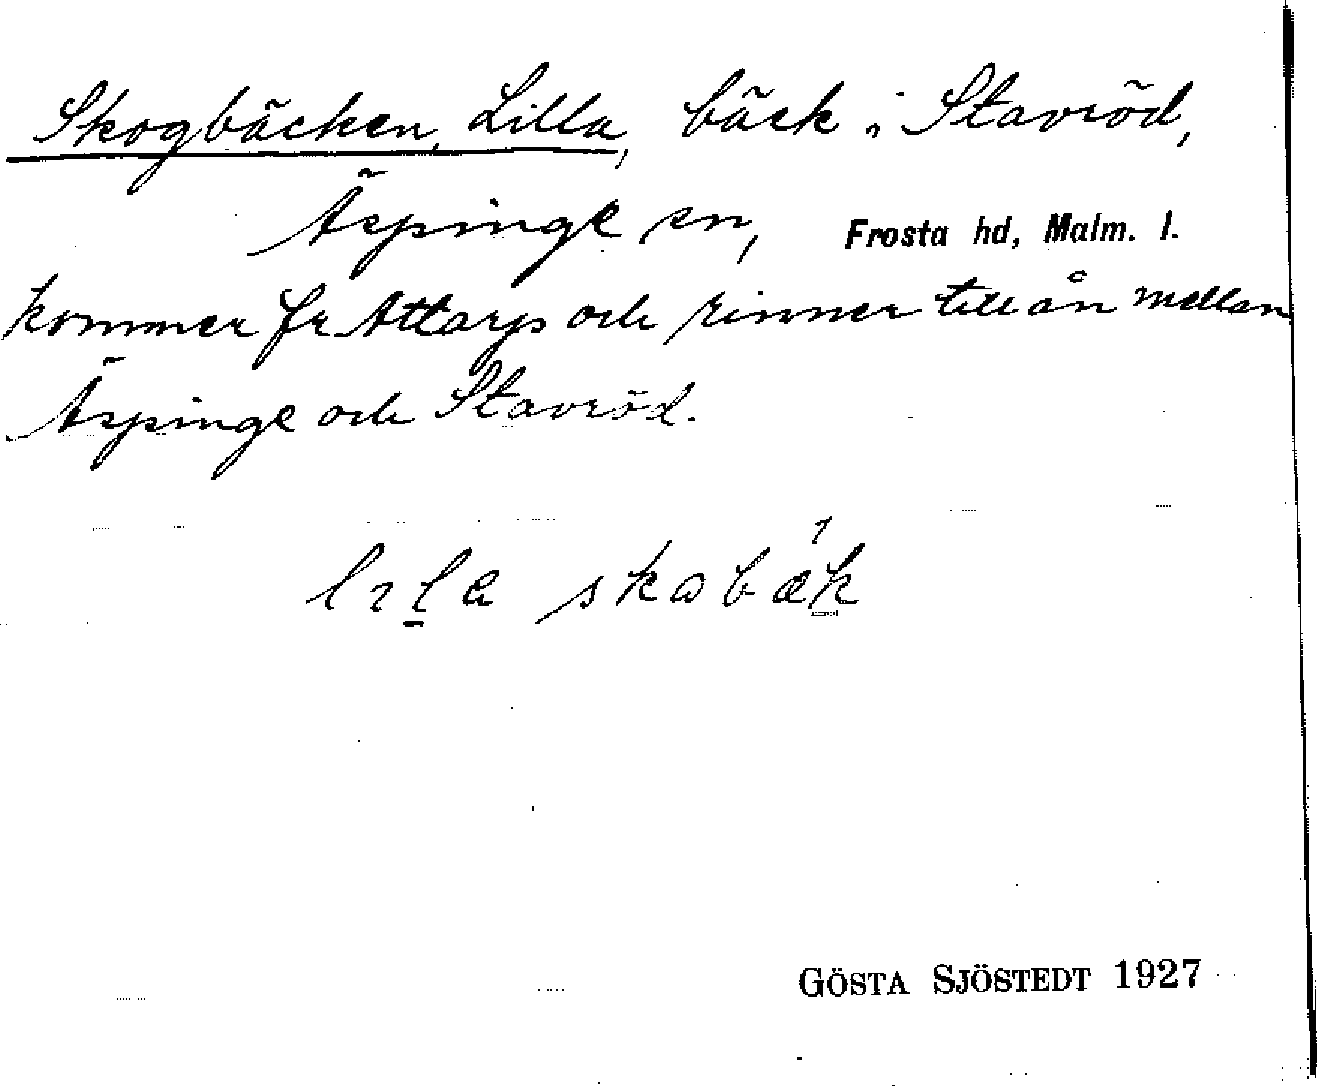 Skogbäcken, Lilla, bäck i Stavröd,
Äspinge sn, Frosta hd, Malm. l.
kommer fr Attarp och rinner till ån mellan
Äspinge och Stavröd.
lıla skobäk
GÖSTA SJÖSTEDT 1927